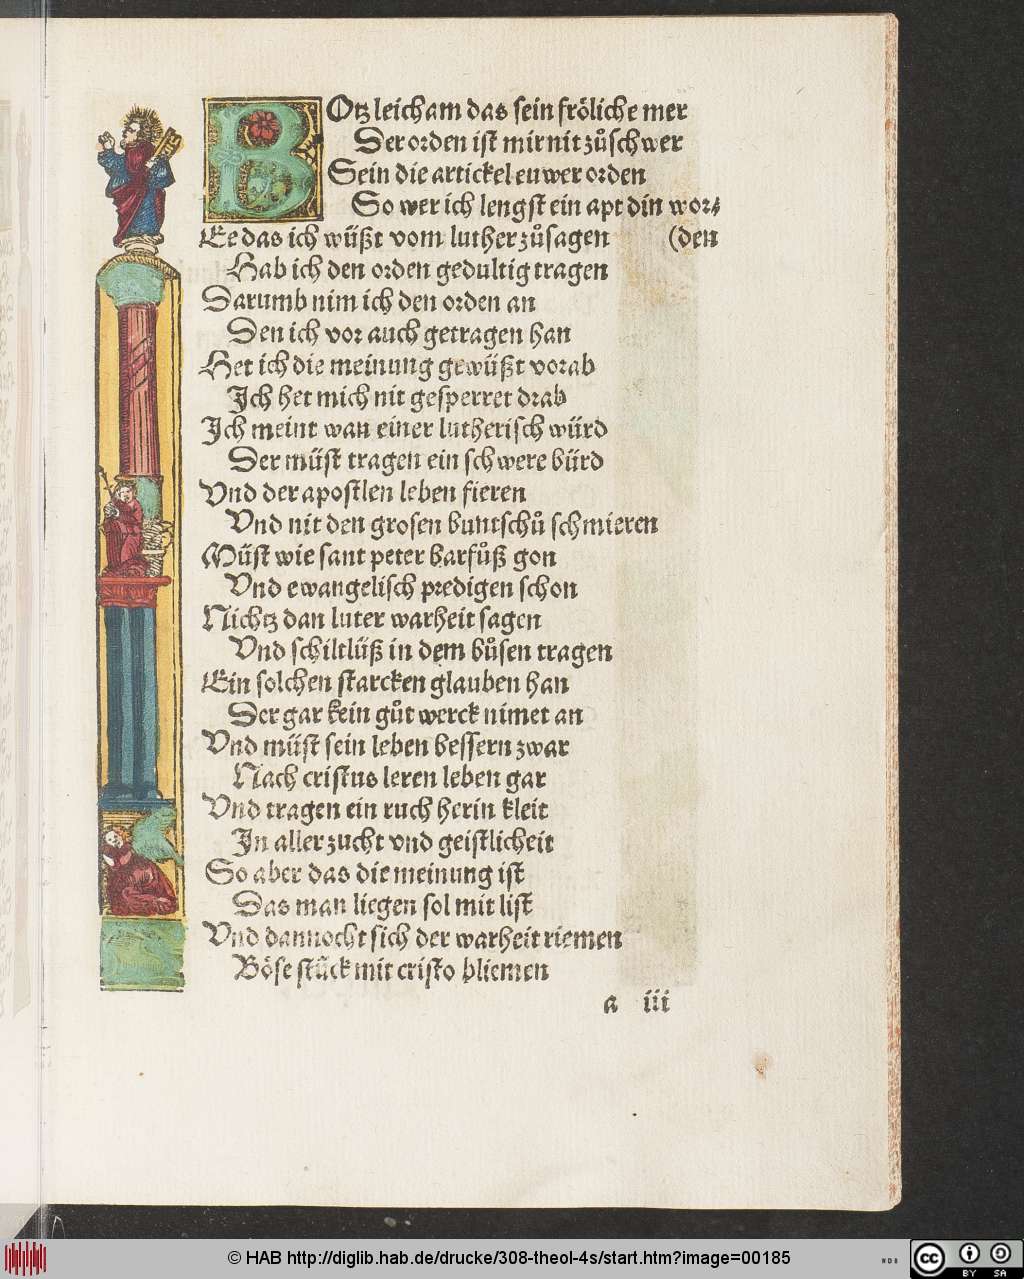 BOtz leicham das sein fröliche mer
Der orden ist mir nit zůschwer
Sein die artickel euwer orden
So wer ich lengst ein apt din wor⸗
Ee das ich wüßt vom luther zůsagen (den
Hab ich den orden gedultig tragen
Darumb nim ich den orden an
Den ich vor auch getragen han
Het ich die meinung gewüßt vorab
Ich het mich nit gesperret drab
Ich meint wan einer lutherisch würd
Der müst tragen ein schwere bürd
Vnd der apostlen leben fieren
Vnd nit den grosen buntschů schmieren
Müst wie sant peter barfůß gon
Vnd ewangelisch predigen schon
Nichtz dan luter warheit sagen
Vnd schiltlüß in dem bůsen tragen
Ein solchen starcken glauben han
Der gar kein gůt werck nimet an
Vnd müst sein leben bessern zwar
Nach cristus leren leben gar
Vnd tragen ein ruch herin kleit
In aller zucht vnd geistlicheit
So aber das die meinung ist
Das man liegen sol mit list
Vnd dannocht sich der warheit riemen
Böse stück mit cristo bliemen
a iii
© HAB http://diglib.hab.de/drucke/308-theol-4s/start.htm?image=00185
WDB
cc
BY SA